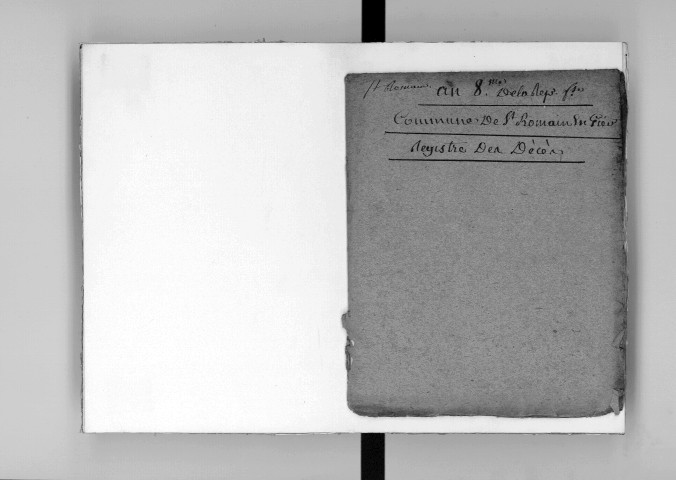 St Romain
an 8.me De la Rep. fse
Commune De St Romain En Gier
Registre Des Décès